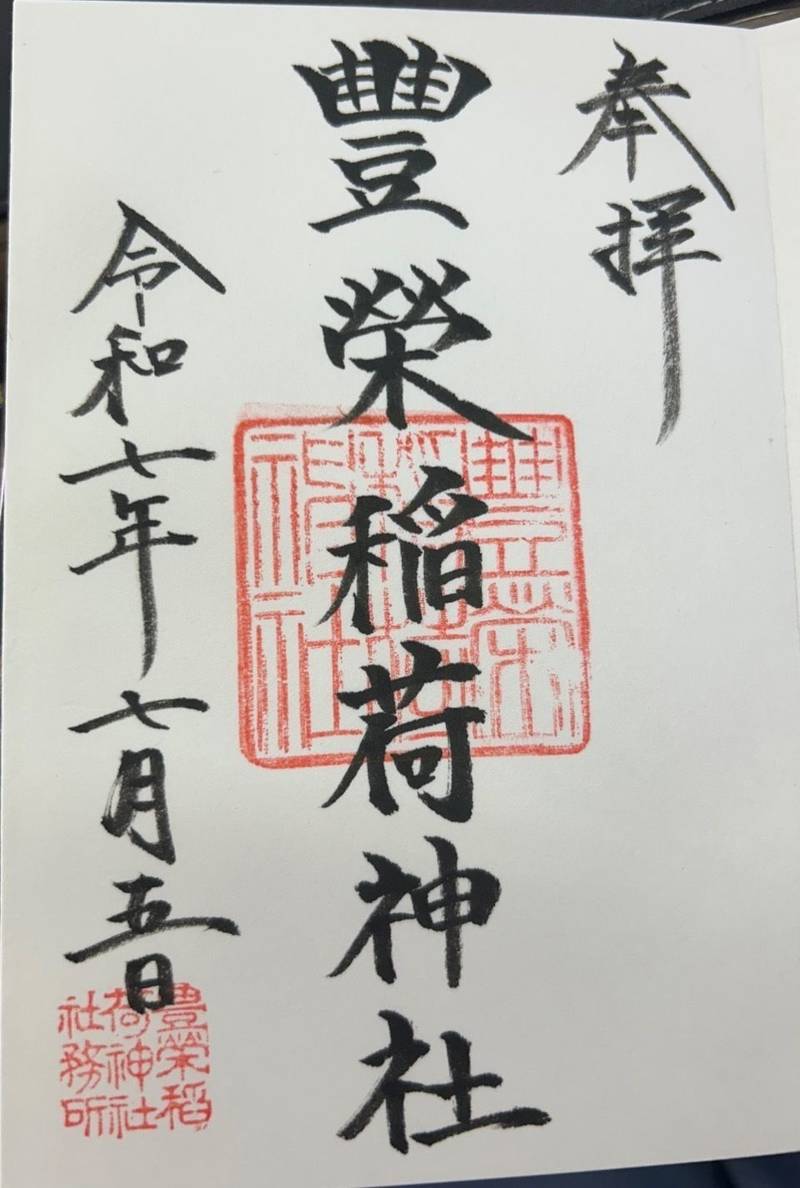 奉拝
豐榮稲荷神社
豐榮稲荷神社
令和七年七月五日
豊榮稲
荷神社
社務所